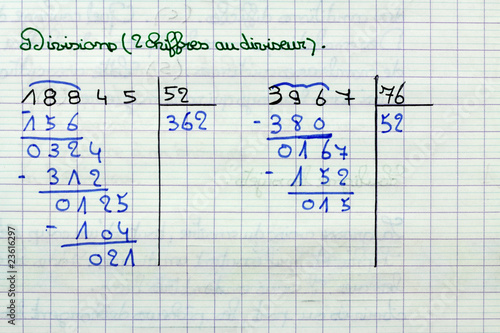 Divisions (2 chiffres au diviseur).
18845 52
- 156 362
0324
- 312
0125
- 104
021
3967 76
- 380 52
0167
- 152
015
23616297